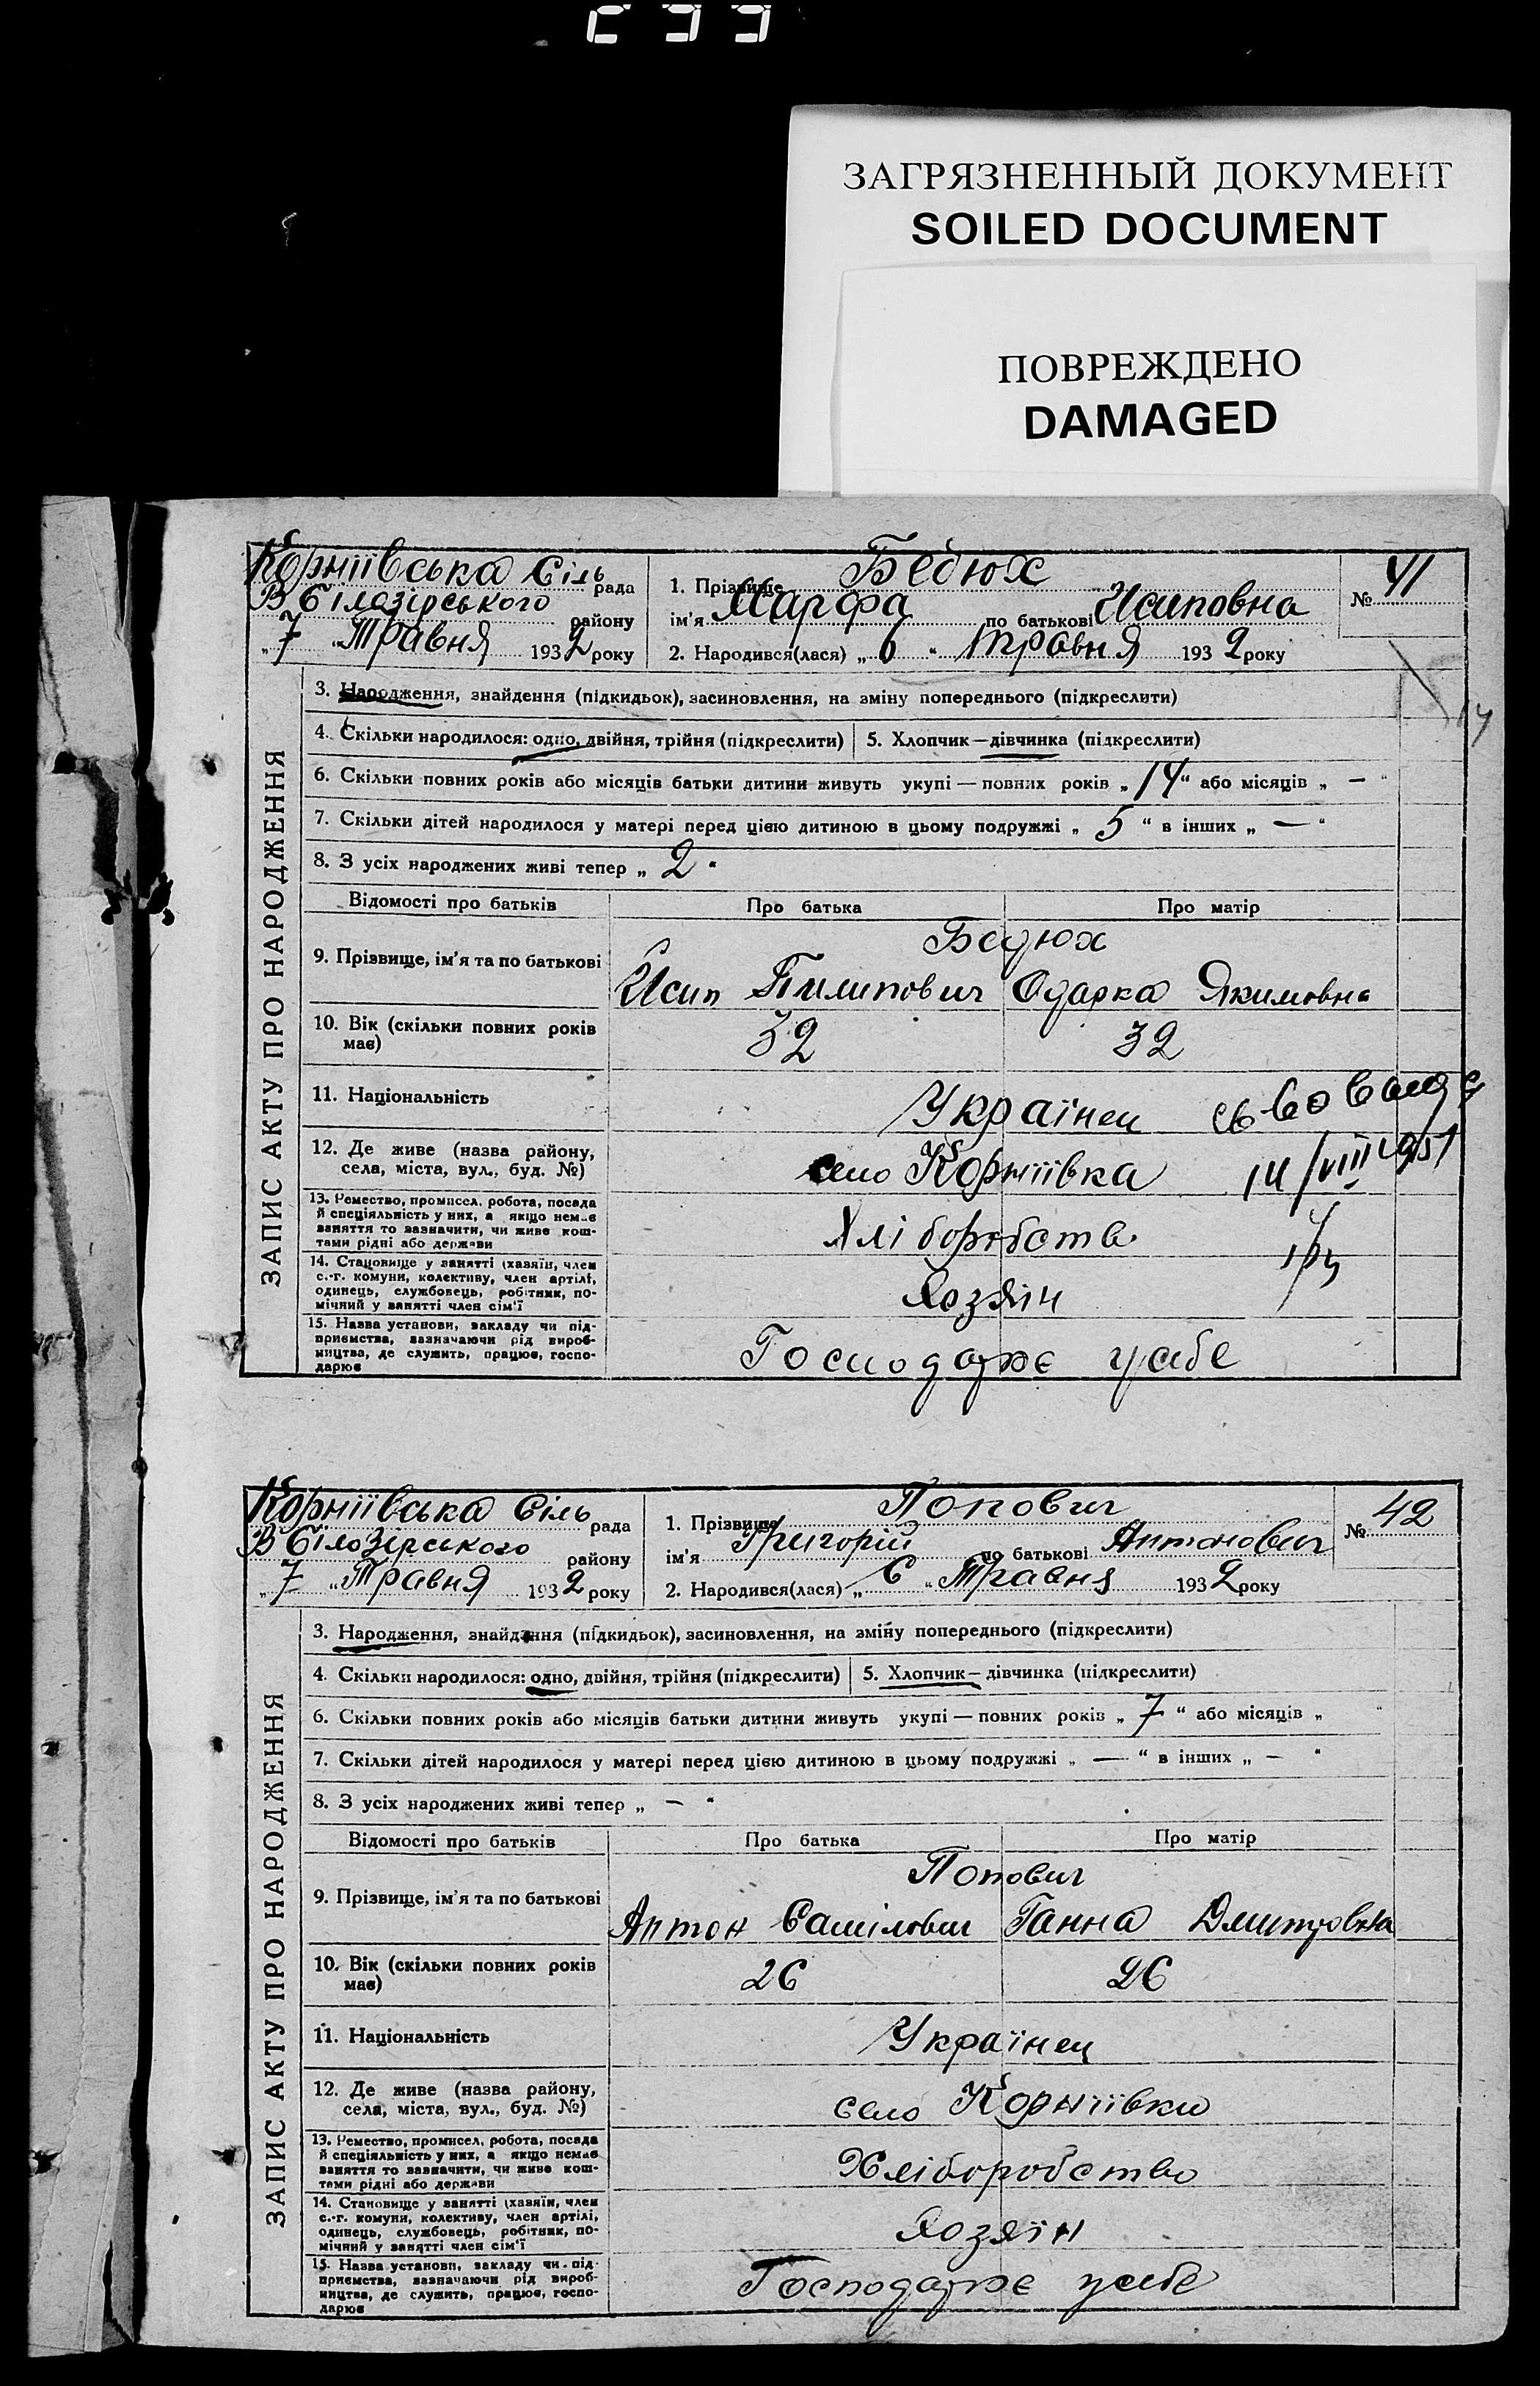 ЗАГРЯЗНЕННЫЙ ДОКУМЕНТ
SOILED DOCUMENT
ПОВРЕЖДЕНО
DAMAGED
Корніївська Сіль рада
В Білозірського району
„ 7 „ Травня 1932 року
1. Прізвище Бедюх
ім'я Марфа по батькові Исиповна
2. Народився(лася) „ 6 “ травня 1932 року
№ 41
ЗАПИС АКТУ ПРО НАРОДЖЕННЯ
3. Народження, знайдення (підкидьок), засиновлення, на зміну попереднього (підкреслити)
4. Скільки народилося: одно, двійня, трійня (підкреслити) 5. Хлопчик — дівчинка (підкреслити)
6. Скільки повних років або місяців батьки дитини живуть укупі — повних років „ 14 “ або місяців „ — “
7. Скільки дітей народилося у матері перед цією дитиною в цьому подружжі „ 5 “ в інших „ — “
8. З усіх народжених живі тепер „ 2 “
Відомості про батьків Про батька Про матір
Бедюх
9. Прізвище, ім'я та по батькові Исип Пилипович Одарка Якимовна
10. Вік (скільки повних років має) 32 32
11. Національність Українец
12. Де живе (назва району, села, міста, вул., буд. №) село Корніївка 14/VIII 1951
13. Ремество, промисел, робота, посада
й спеціяльність у них, а якщо немає
заняття то зазначити, чи живе кош-
тами рідні або держави Хліборобство
14. Становище у занятті (хазяїн, член
с.-г. комуни, колективу, член артілі,
одинець, службовець, робітник, по-
мічний у занятті член сім'ї Хозяїн
15. Назва установи, закладу чи під-
приємства, зазначаючи рід вироб-
ництва, де служить, працює, госпо-
дарює Господарює у себе
Корніївська Сіль рада
В Білозірського району
„ 7 „ Травня 1932 року
1. Прізвище Попович
ім'я Григорій по батькові Антонович
2. Народився(лася) „ 6 “ Травня 1932 року
№ 42
ЗАПИС АКТУ ПРО НАРОДЖЕННЯ
3. Народження, знайдення (підкидьок), засиновлення, на зміну попереднього (підкреслити)
4. Скільки народилося: одно, двійня, трійня (підкреслити) 5. Хлопчик — дівчинка (підкреслити)
6. Скільки повних років або місяців батьки дитини живуть укупі — повних років „ 7 “ або місяців „ “
7. Скільки дітей народилося у матері перед цією дитиною в цьому подружжі „ — “ в інших „ — “
8. З усіх народжених живі тепер „ — “
Відомості про батьків Про батька Про матір
Попович
9. Прізвище, ім'я та по батькові Антон Самілович Ганна Дмитровна
10. Вік (скільки повних років має) 26 26
11. Національність Українец
12. Де живе (назва району, села, міста, вул., буд. №) село Корніївки
13. Ремество, промисел, робота, посада
й спеціяльність у них, а якщо немає
заняття то зазначити, чи живе кош-
тами рідні або держави Хліборобство
14. Становище у занятті (хазяїн, член
с.-г. комуни, колективу, член артілі,
одинець, службовець, робітник, по-
мічний у занятті член сім'ї Хозяїн
15. Назва установи, закладу чи під-
приємства, зазначаючи рід вироб-
ництва, де служить, працює, госпо-
дарює Господарює у себе